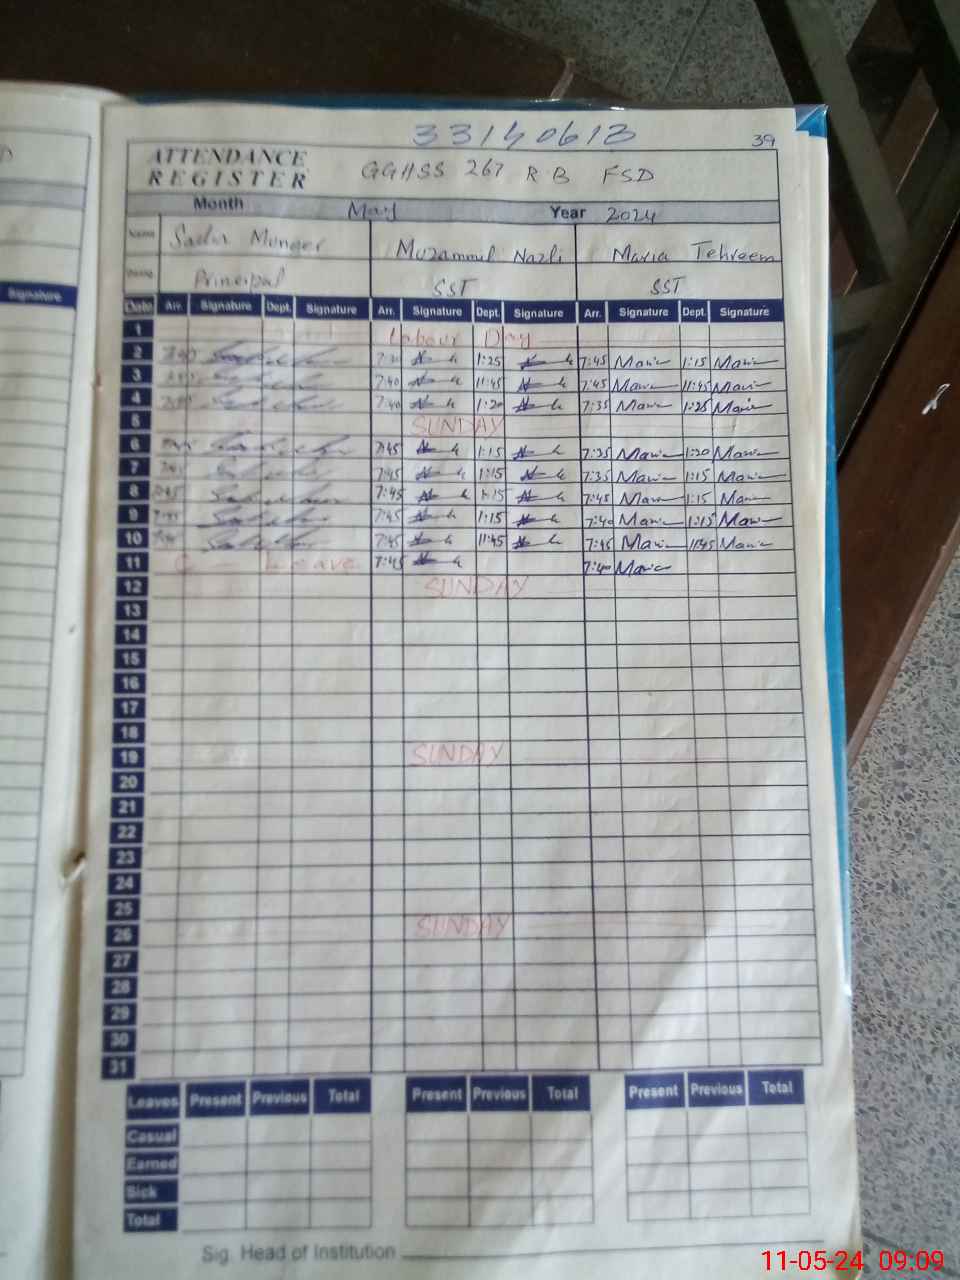 33140613
39
ATTENDANCE REGISTER GGHSS 267 R.B FSD
Month May Year 2024
Name Muzammil Nazli Maria Tehreem
Principal SST SST
Signature
Date Arr. Signature Dept. Signature Arr. Signature Dept. Signature Arr. Signature Dept. Signature
1 Labour Day
2 1:25 7:45 Maria 1:15 Maria
3 7:40 11:45 7:45 Maria 11:45 Maria
4 7:40 1:20 7:35 Maria 1:25 Maria
5 SUNDAY
6 7:45 1:15 7:35 Maria 1:20 Maria
7 7:45 1:15 7:35 Maria 1:15 Maria
8 7:45 1:15 7:45 Maria 1:15 Maria
9 7:45 1:15 7:40 Maria 1:15 Maria
10 7:45 11:45 7:45 Maria 11:45 Maria
11 C Leave 7:45 7:40 Maria
12 SUNDAY
13
14
15
16
17
18
19 SUNDAY
20
21
22
23
24
25
26 SUNDAY
27
28
29
30
31
Leaves Present Previous Total Present Previous Total Present Previous Total
Casual
Earned
Sick
Total
Sig. Head of Institution
11-05-24 09:09